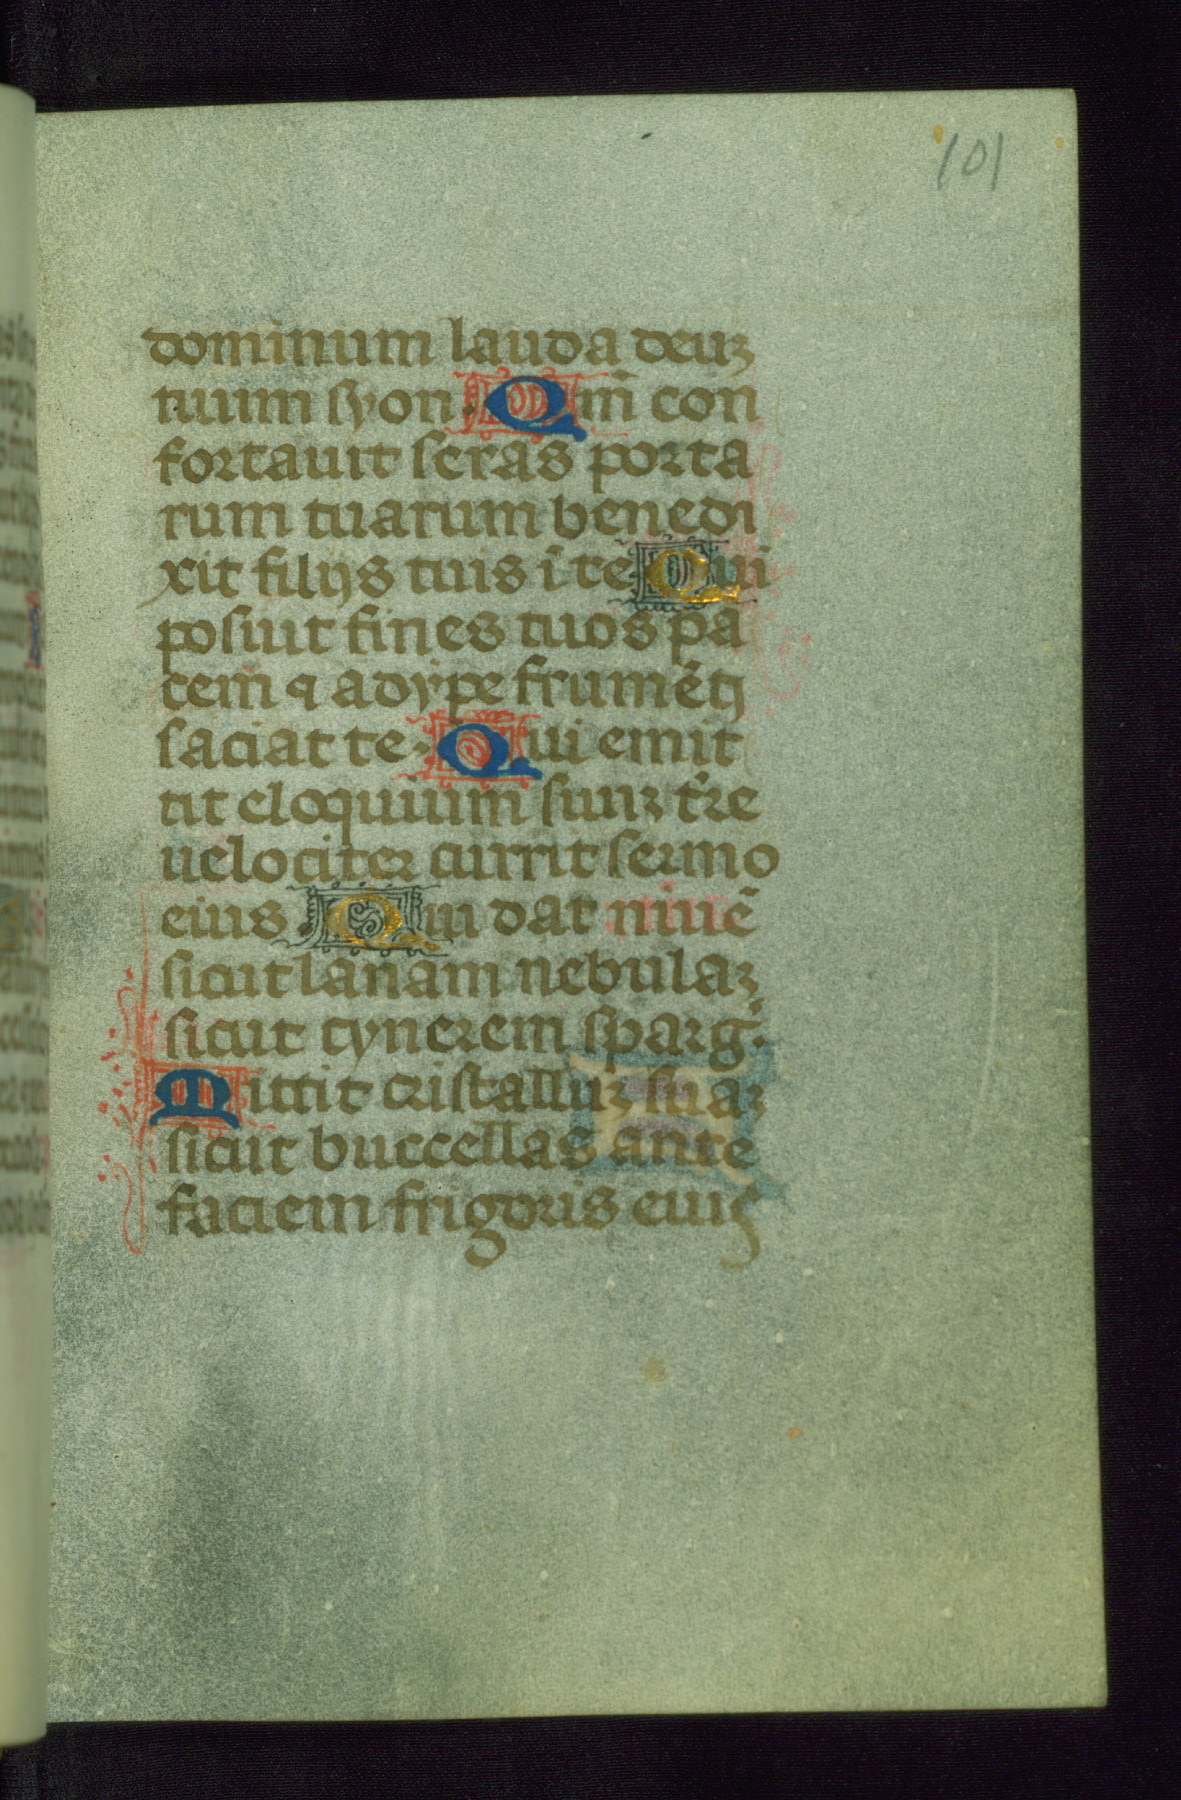 101
dominum lauda deuʒ
tuum syon. Qm̄ con
fortauit seras porta
rum tuarum benedi
xit filijs tuis ī te Qui
posuit fines tuos pa
cem̄ ⁊ adype frumētj
saciat te. Qui emit
tit eloquium suuʒ tr̄re
uelociter currit sermo
eius. Qui dat niuē
sicut lanam nebulaʒ
sicut cynerem sparḡ.
Mittit cristalluʒ suaʒ
sicut buccellas ante
faciem frigoris eius